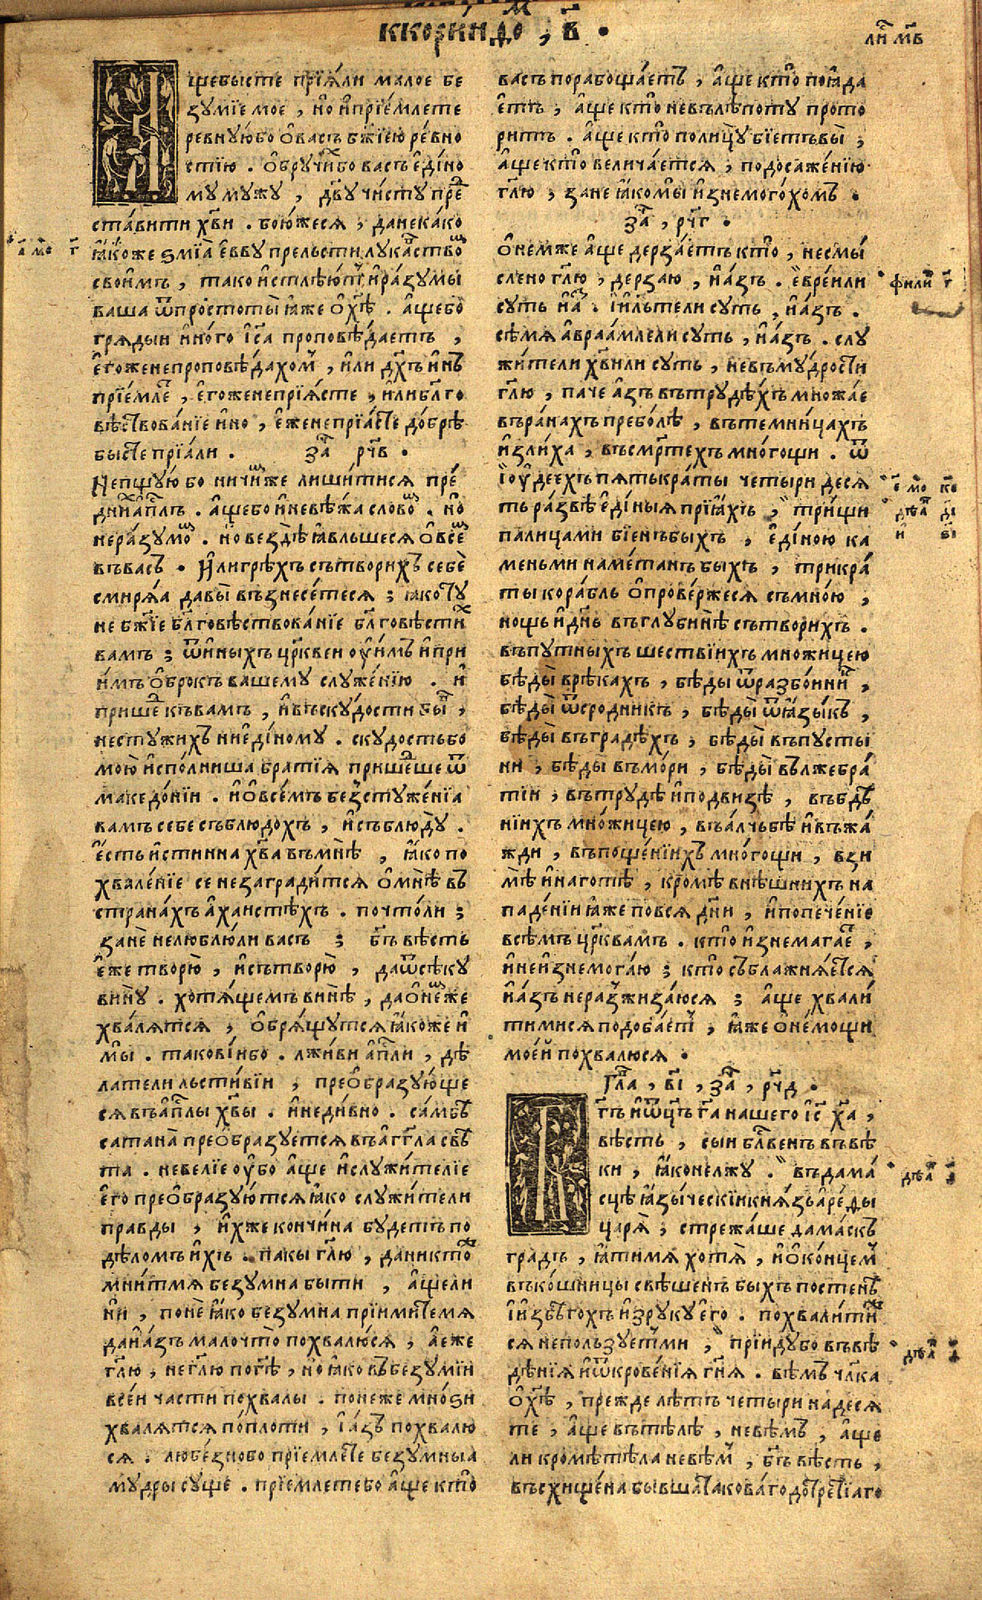 ККОРИНДО , в҃ .
ли҃ мв
А҆щебысте прїѧ́ли малое бе
зумїе мое , но и҆прїе́млете
ревну́юбо ѻ҆васъ бж҃їею ре́вно
стїю . ѻ҆бручи́хбо васъ е҆ди́но
му мужу , дв҃у чи́сту пре
ста́вити хв҃и . бою́жесѧ , данекако
ꙗ҆́коже ѕмїа̀ е҆вву прельстѝ лука́вство
свои́мъ , тако и҆стлѣ́ютъ ра́зумы
ваша ѿпростоты̀ ꙗ҆же ѻ҆хс҃ѣ . а҆щебо
грѧды́и и҆ного і҆с҃а проповѣ́даетъ ,
е҆го́жене проповѣ́дахом , или дх҃ъ и҆нъ
прїе́мле , е҆го́женепрїѧ́сте , и҆лѝ бл҃го
вѣ́ствованїе и҆но , е҆́жене прїѧ́сте до́брѣ
бы́сте прїѧли . за҃ рч҃в .
Непщу́ю бо ничи́мже лиши́тисѧ пре́
дни́х а҆пл҃ъ . а҆щебо и҆невѣ́жа словом . но
нера́зумом . но вездѣ̀ ꙗ҆́вльшесѧ ѻ҆все́м
въвасъ . И҆лигрѣ́хъ сътвори́хъ себѐ
смирѧ́ѧ давы̀ възнесе́тесѧ ; ꙗ҆ко ту
не бж҃їе бл҃говѣствова́нїе бл҃говѣсти́х
вамъ ; ѿи́ныхъ цр҃квеи оу҆и́мъ и҆при
и́мъ ѻ҆брокъ вашему служе́нїю . и҆
прише́д къвамъ , и҆въску́дости быв ,
нестужи́хъ ниеди́ному . скудостьбо
мою̀ и҆спо́лниша бра́тїѧ прише́дше ѿ
македо́нїи . и҆ѻ҆всемъ безстуже́нїа
вамъ себе съблю́дохъ , и҆съблюду̀ .
е҆́сть и҆́стинна хв҃а въмнѣ̀ , ꙗ҆ко по
хвале́нїе се незагради́тсѧ ѻ҆мнѣ̀ въ
страна́хъ а҆ха́истѣхъ . почто́ли ;
занѐ нелюблю́ли васъ ; бг҃ъ вѣсть
е҆́же творю̀ , и҆сътворю̀ , даѿсѣку
вину̀ . хотѧ́щемъ вины̀ , даѻ҆не́мже
хва́лѧтсѧ , ѻ҆брѧ́щутсѧ ꙗ҆коже и҆
мы̀ . такові́ибо . лжи́ви а҆пл҃и , дѣ́
лателѝ льсти́вїи , преѻ҆бразу́юще
сѧ въа҆пл҃ы хв҃ы . и҆неди́вно . са́мбо
сатана̀ преѻ҆бразуетсѧ въа҆гг҃ла свѣ
та . невелїе оу҆бо а҆ще и҆служи́телїе
е҆го преѻ҆бразу́ютсѧ ꙗ҆ко служи́тели
правды , и҆́хже кончи́на бу́детъ по
дѣломъ и҆́хъ . Пакы гл҃ю , даникто
мни́тмѧ безумна быти , а҆щели
ни , понѐ ꙗ҆ко безумна прїими́темѧ
даиа҆́зъ малочто̀ похвалю́сѧ , а҆еже
гл҃ю , негл҃ю погд҃ѣ , но ꙗ҆ко въбезу́мїи
всеи части похвалы̀ . поне́же мно́ѕи
хва́лѧтсѧ по́плоти , і҆а́зъ похвалю
сѧ . любе́знобо прїе́млете безумныѧ
му́дры сущѐ . прїе́млетебо а҆ще кто
васъ порабоща́етъ , а҆ще кто̀ поꙗ҆да
етъ ; а҆ще кто̀ невълѣпоту прото
ритъ . а҆ще кто̀ полицу̀ бїетъвы̀ ;
а҆ще кто̀ велича́етсѧ ; подосажде́нїю
гл҃ю ; зане ꙗ҆ко мы̀ и҆знемогохомъ .
за҃ , рч҃г .
Ѻ҆немже а҆ще дерза́етъ кто̀ , несмы́
слено гл҃ю , дерзаю , и҆а́зъ . е҆вре́или
суть и҆аз . і҆и҃льтели суть , и҆а́зъ .
сѣ́мѧ а҆враа́млели суть , и҆а́зъ . слу
жи́тели хв҃ли суть , невъмудрости
гл҃ю , паче а҆зъ въ трудѣ́хъ множае
въра́нахъ пребо́лѣ , въ темни́цахъ
и҆зли́ха , въсмр҃техъ мно́гощи . ѿ
і҆оу҆дее́хъ пѧтькра́ты четыри десѧ
ть ра́звѣ е҆ди́ныѧ прїѧ́хъ , три́щи
палицами бїе́нъбыхъ , е҆ди́ною ка
меньми наме́танъ быхъ , трикра́
ты кора́бль ѻ҆прове́ржесѧ съмно́ю ,
нощь и҆дн҃ь въглубинѣ̀ сътвори́хъ .
въпу́тныхъ ше́ствїихъ мно́жицею
бѣды̀ врѣка́хъ , бѣды̀ ѿразбо́ини ,
бѣды̀ ѿсро́дникъ , бѣды̀ ѿꙗ҆зы́къ ,
бѣды̀ въградѣ́хъ , бѣды̀ въпусты́
ни , бѣ́ды въмо́ри , бѣды̀ вължебра́
тїи , въ трудѣ̀ и҆подвизѣ , въбд҃ѣ
нїихъ мно́жицею , въа́лчьбѣ и҆въжа́
жди , въпоще́нїихъ мно́гощи , взи
мѣ̀ и҆наготѣ̀ , кромѣ̀ внѣ́шнихъ на
паде́нїи ꙗ҆же повсѧ̀ дн҃и , и҆попече́нїе
всѣ́мъ цр҃квамъ . кто̀ и҆знемага́е ,
и҆неи҆знемога́ю ; кто̀ съблажнѧ́етсѧ
и҆а́зъ неразжиза́юсѧ ; а҆ще хвали́
тимисѧ подоба́етъ , ꙗ҆же ѻ҆не́мощи
моеи похвалю́сѧ .
Гла҃ , в҃і , за҃ , рч҃д .
Бг҃ъ и҆ѿц҃ъ гд҃а нашего і҆с҃ х҃а ,
вѣсть , сыи бл҃ве́нъ въвѣ
ки , ꙗ҆ко нелжу̀ . въдама́
сцѣ ꙗ҆зы́ческїи кнѧ́зь а҆ре́ѳы
царѧ̀ ; стрежа́ше дама́скъ
градъ , ꙗ҆́тимѧ хотѧ̀ , и҆ѻ҆ко́нцем
въко́шницы свѣ́шенъ быхъ постенѣ̀
и҆избѣгохъ и҆зрукуе҆го . похвали́тиж
сѧ неползуетъми , прїиду́бо въвѣ
дѣ́нїѧ и҆ѿкрове́нїѧ гн҃ѧ . вѣмъ чл҃ка
ѻ҆хс҃ѣ , прежде лѣтъ четыри надесѧ
те , а҆ще вътѣлѣ , невѣмъ , а҆ще
ли кромѣ̀тѣла невѣм , бг҃ъ вѣсть ,
въсхище́на бывша такова́го до третїаго
а҃ мо г҃
фили г҃
е҃ мо ке
дѣа ді
и ві
дѣа ѳ
дѣа ѳ